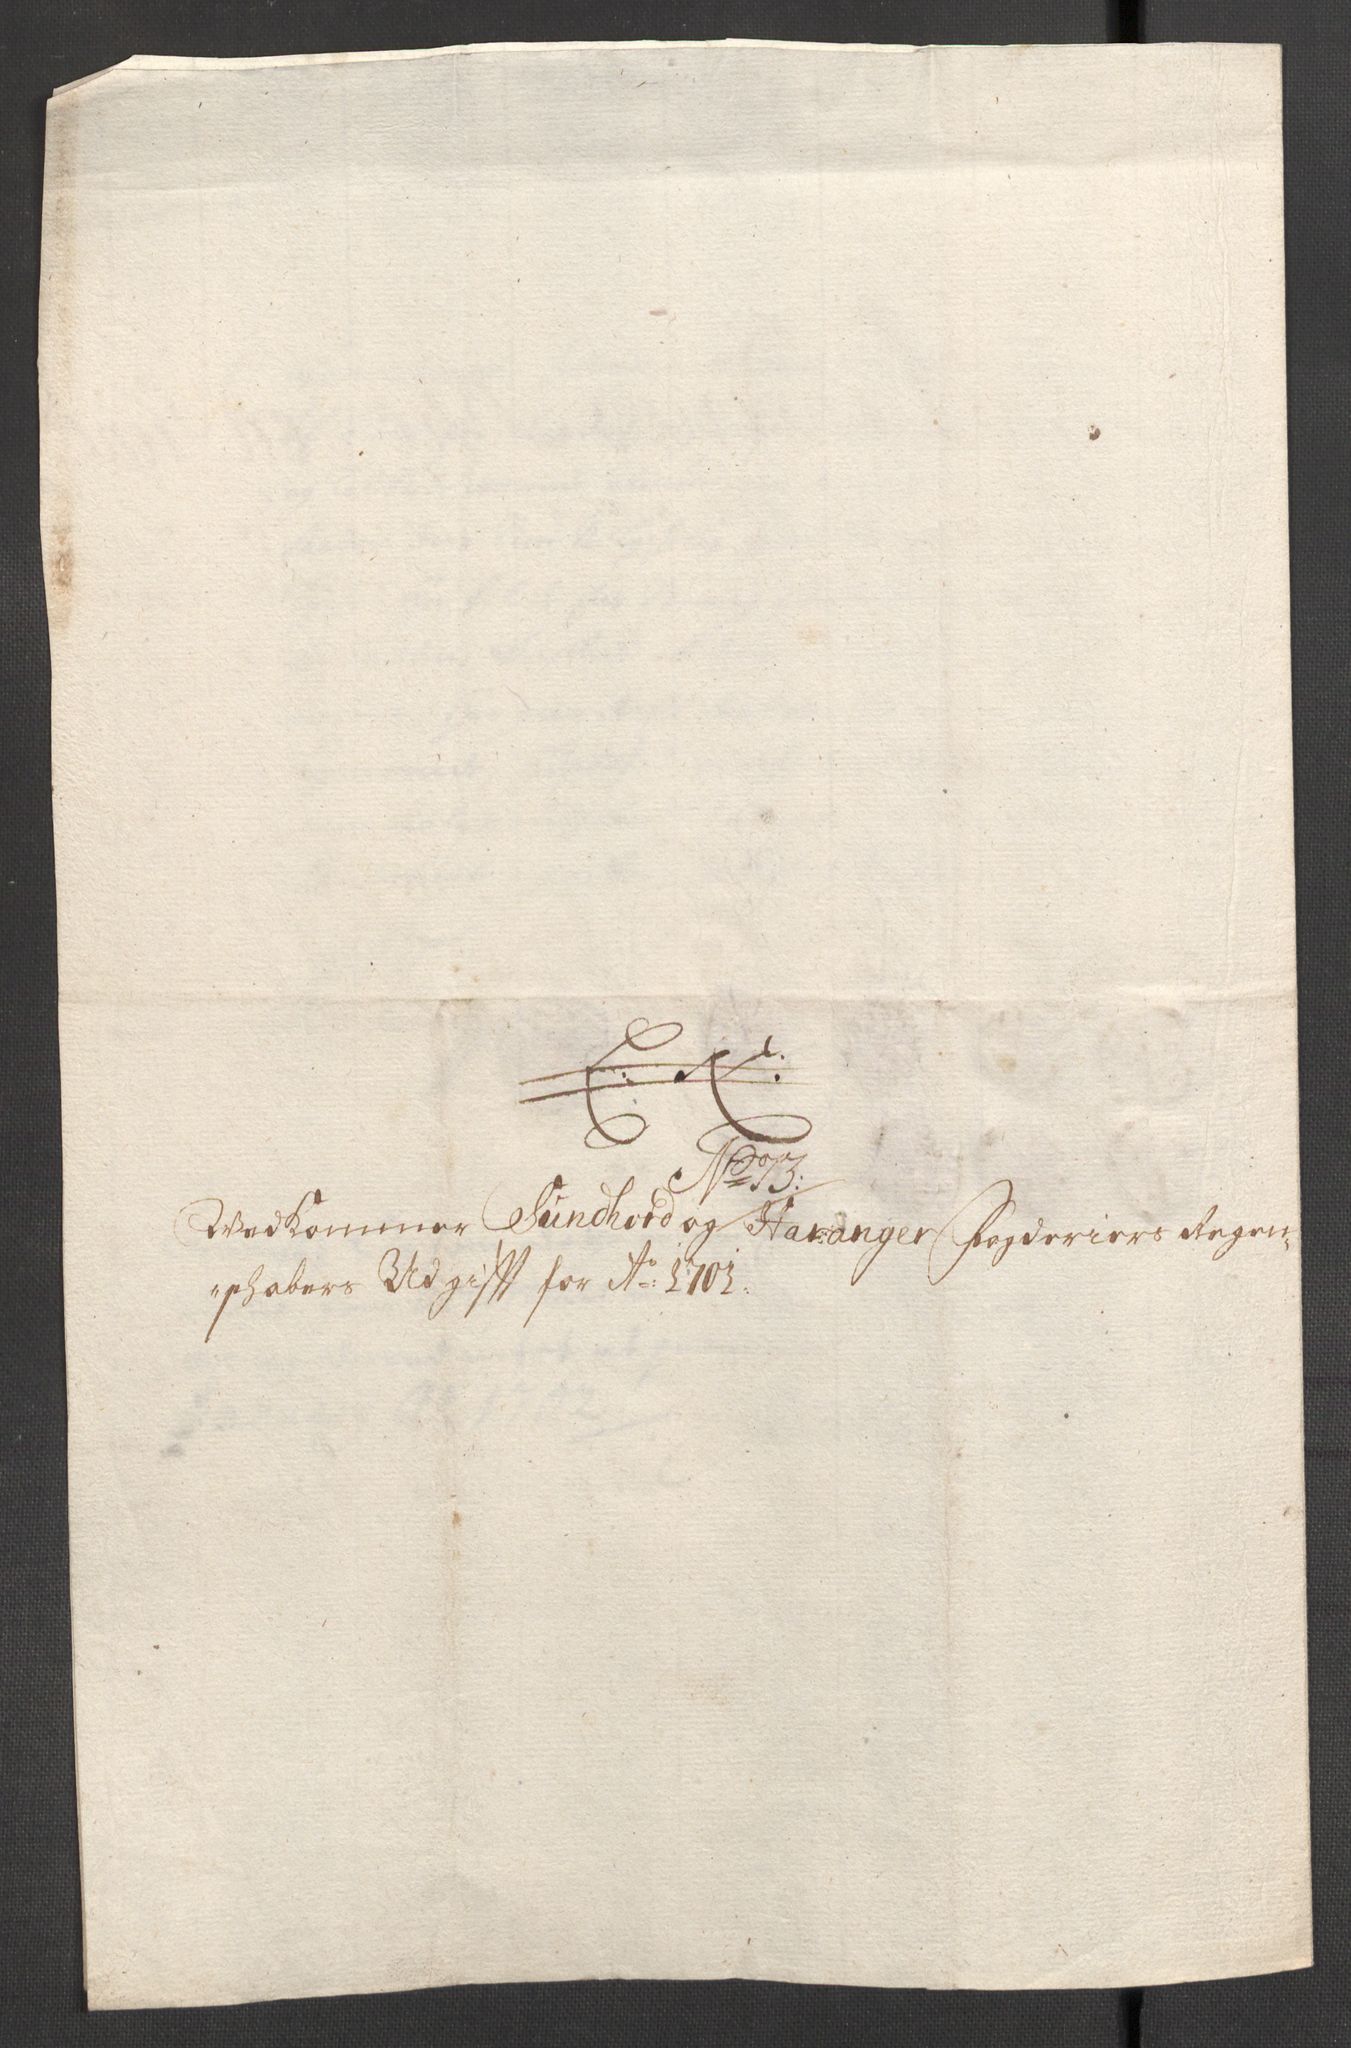 No 73:
Vedkommer Sundhord og Haranger Fogderiers Regen-
schabers Udgifft for Ao: 1701.